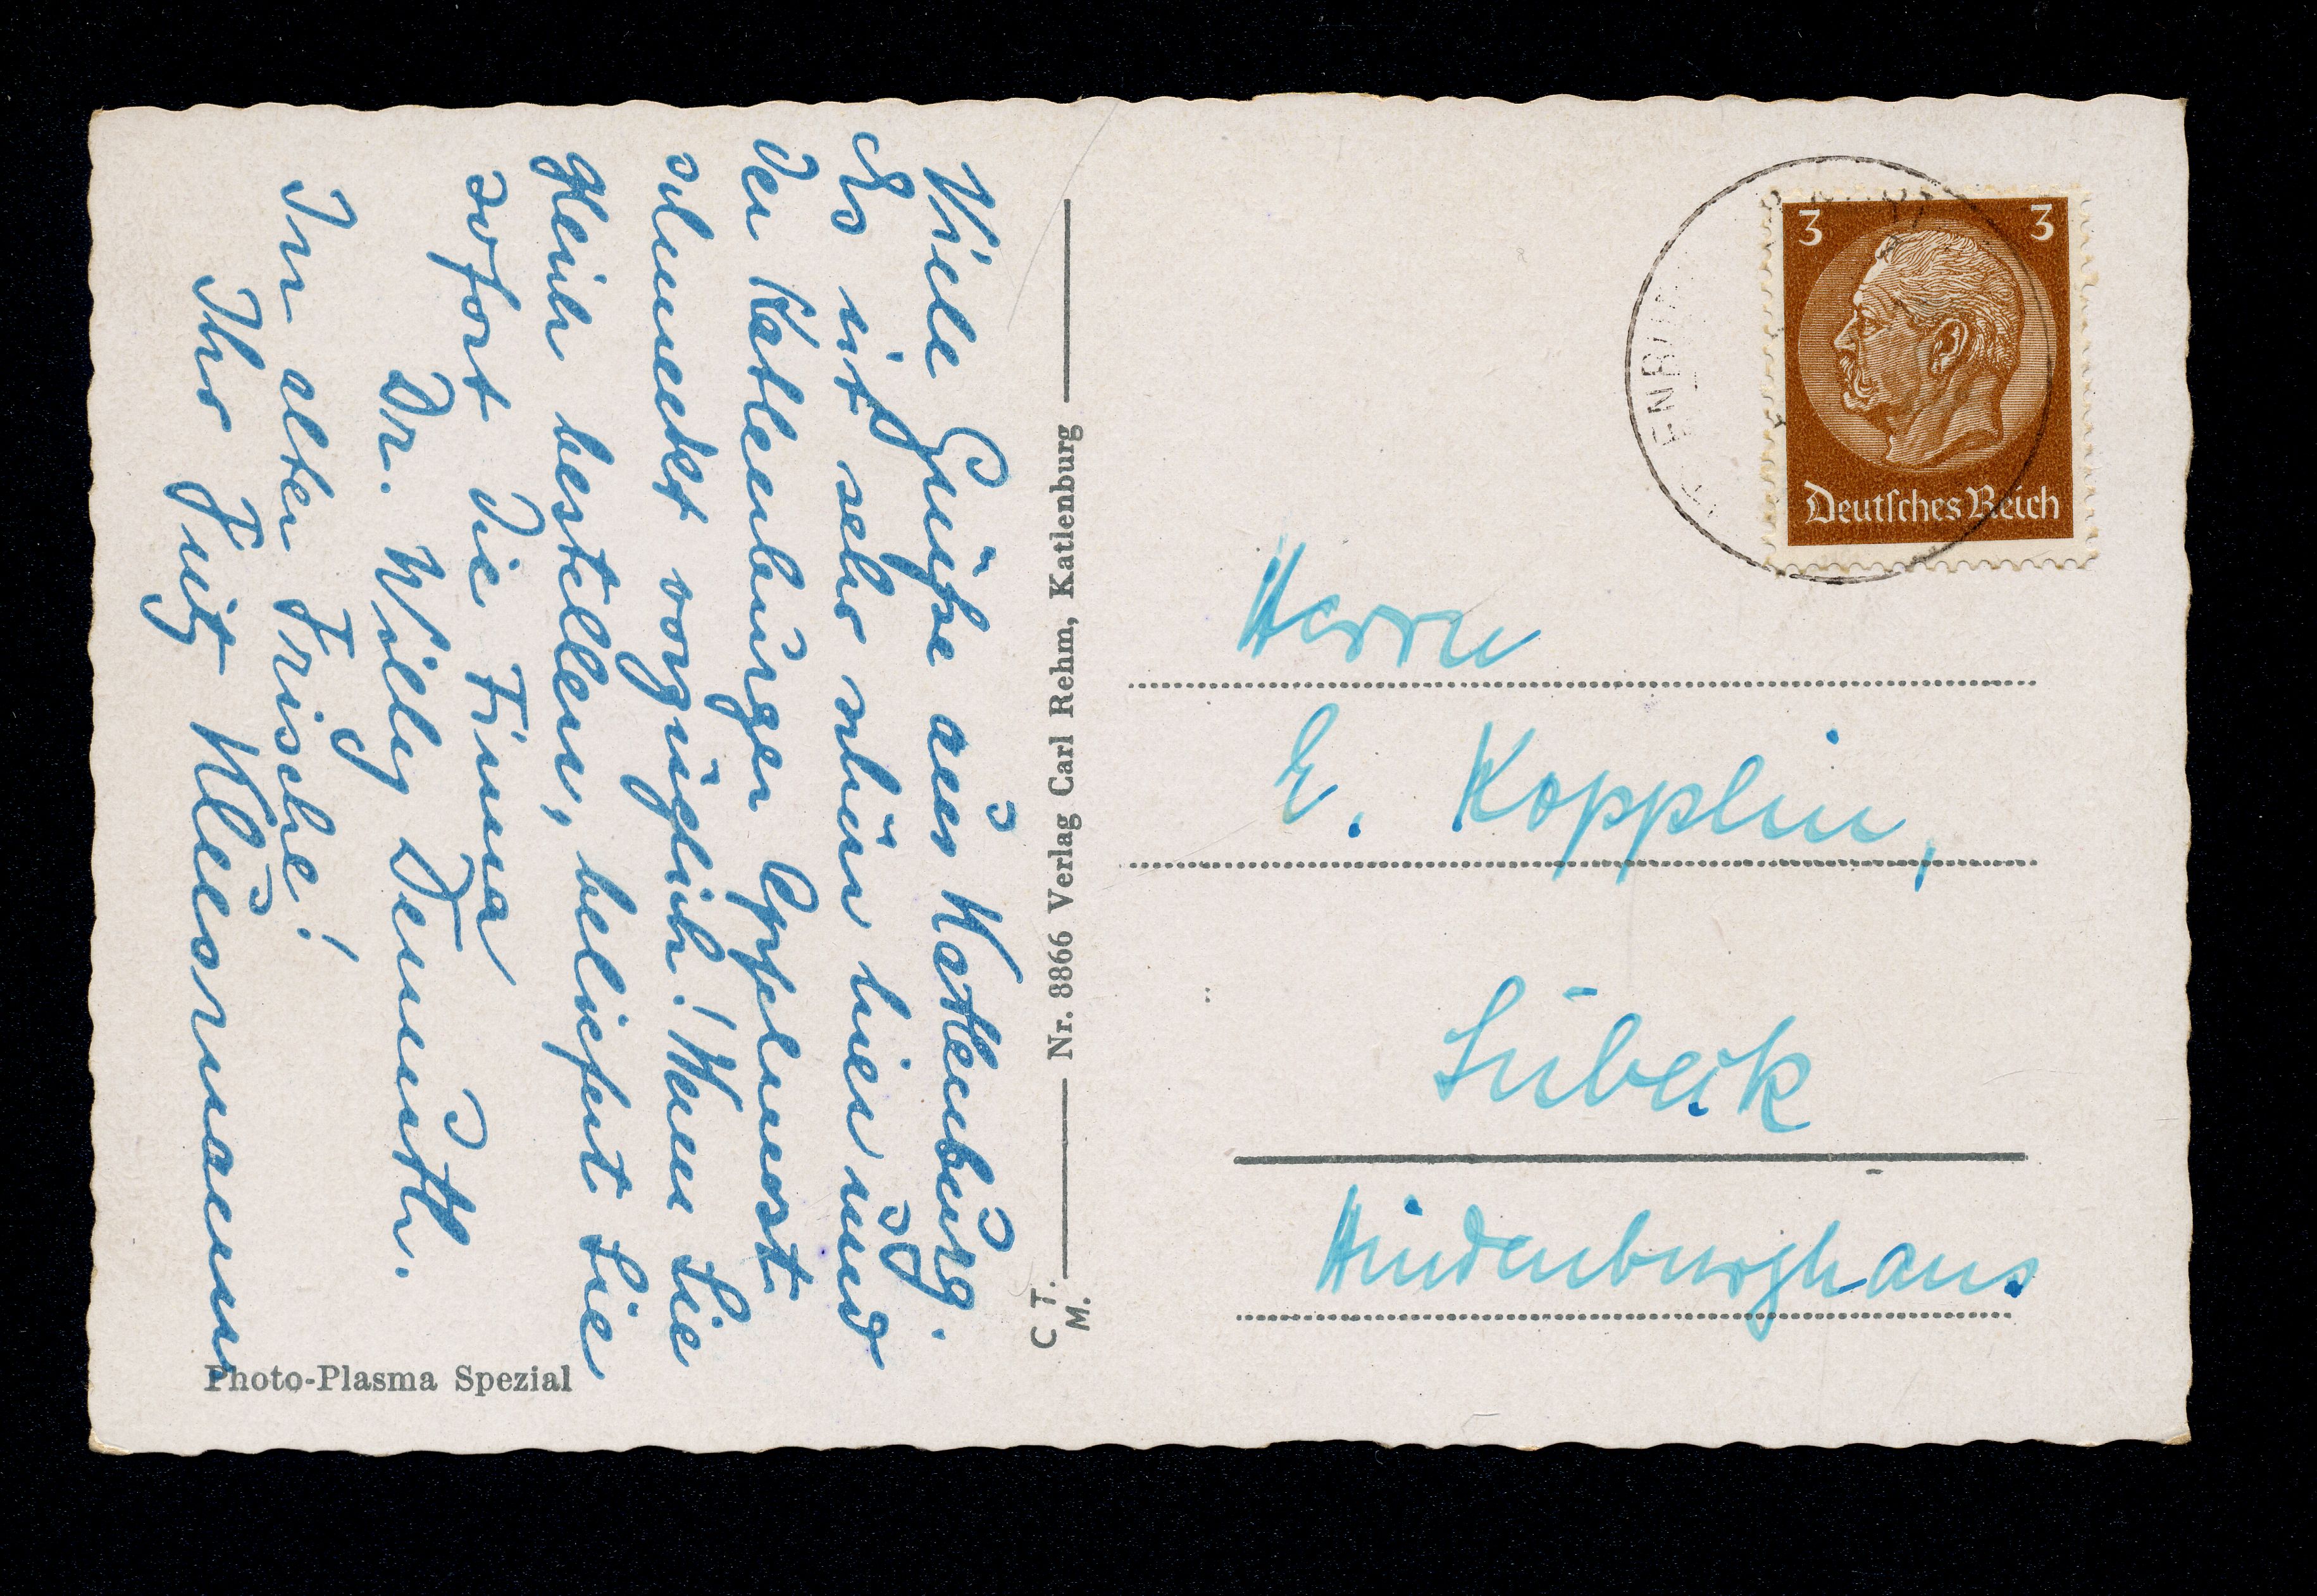 Viele Grüße aus Katlenburg.
Es ist sehr schön hier und
der Katlenburger Apfelmost
schmeckt vorzüglich! Wenn Sie
gleich bestellen, beliefert Sie
sofort die Firma
Dr. Willy Demuth.
In alter Frische!
Ihr Fritz Klausmann
Photo-Plasma Spezial
Nr. 8866 Verlag Carl Rehm, Katlenburg
C T.
M.
3 3
Deutsches Reich
Herrn
E. Kopplin,
Lübeck
Hindenburghaus